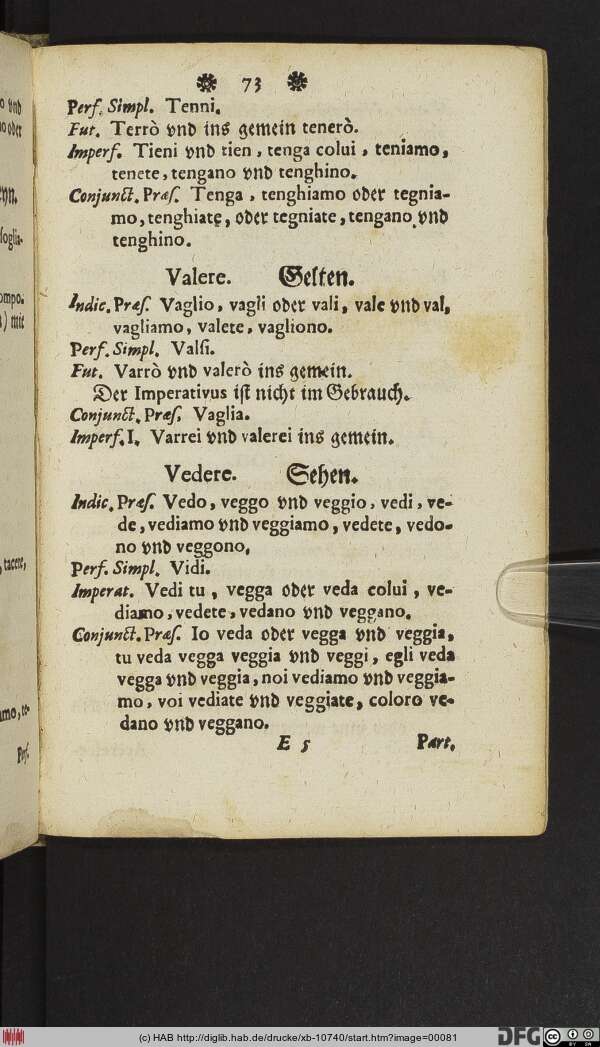 ❋ 73 ❋
Perf. Simpl. Tenni.
Fut. Terrò vnd ins gemein tenerò.
Imperf. Tieni vnd tien, tenga colui, teniamo,
tenete, tengano vnd tenghino.
Conjunct. Præs. Tenga, tenghiamo oder tegnia-
mo, tenghiate, oder tegniate, tengano vnd
tenghino.
Valere. Gelten.
Indic. Præs. Vaglio, vagli oder vali, vale vnd val,
vagliamo, valete, vagliono.
Perf. Simpl. Valsi.
Fut. Varrò vnd valerò ins gemein.
Der Imperativus ist nicht im Gebrauch.
Conjunct. Præs. Vaglia.
Imperf. I. Varrei vnd valerei ins gemein.
Vedere. Sehen.
Indic. Præs. Vedo, veggo vnd veggio, vedi, ve-
de, vediamo vnd veggiamo, vedete, vedo-
no vnd veggono.
Perf. Simpl. Vidi.
Imperat. Vedi tu, vegga oder veda colui, ve-
diamo, vedete, vedano vnd veggano.
Conjunct. Præs. Io veda oder vegga vnd veggia,
tu veda vegga veggia vnd veggi, egli veda
vegga vnd veggia, noi vediamo vnd veggia-
mo, voi vediate vnd veggiate, coloro ve-
dano vnd veggano.
E 5 Part.
(c) HAB http://diglib.hab.de/drucke/xb-10740/start.htm?image=00081
DFG